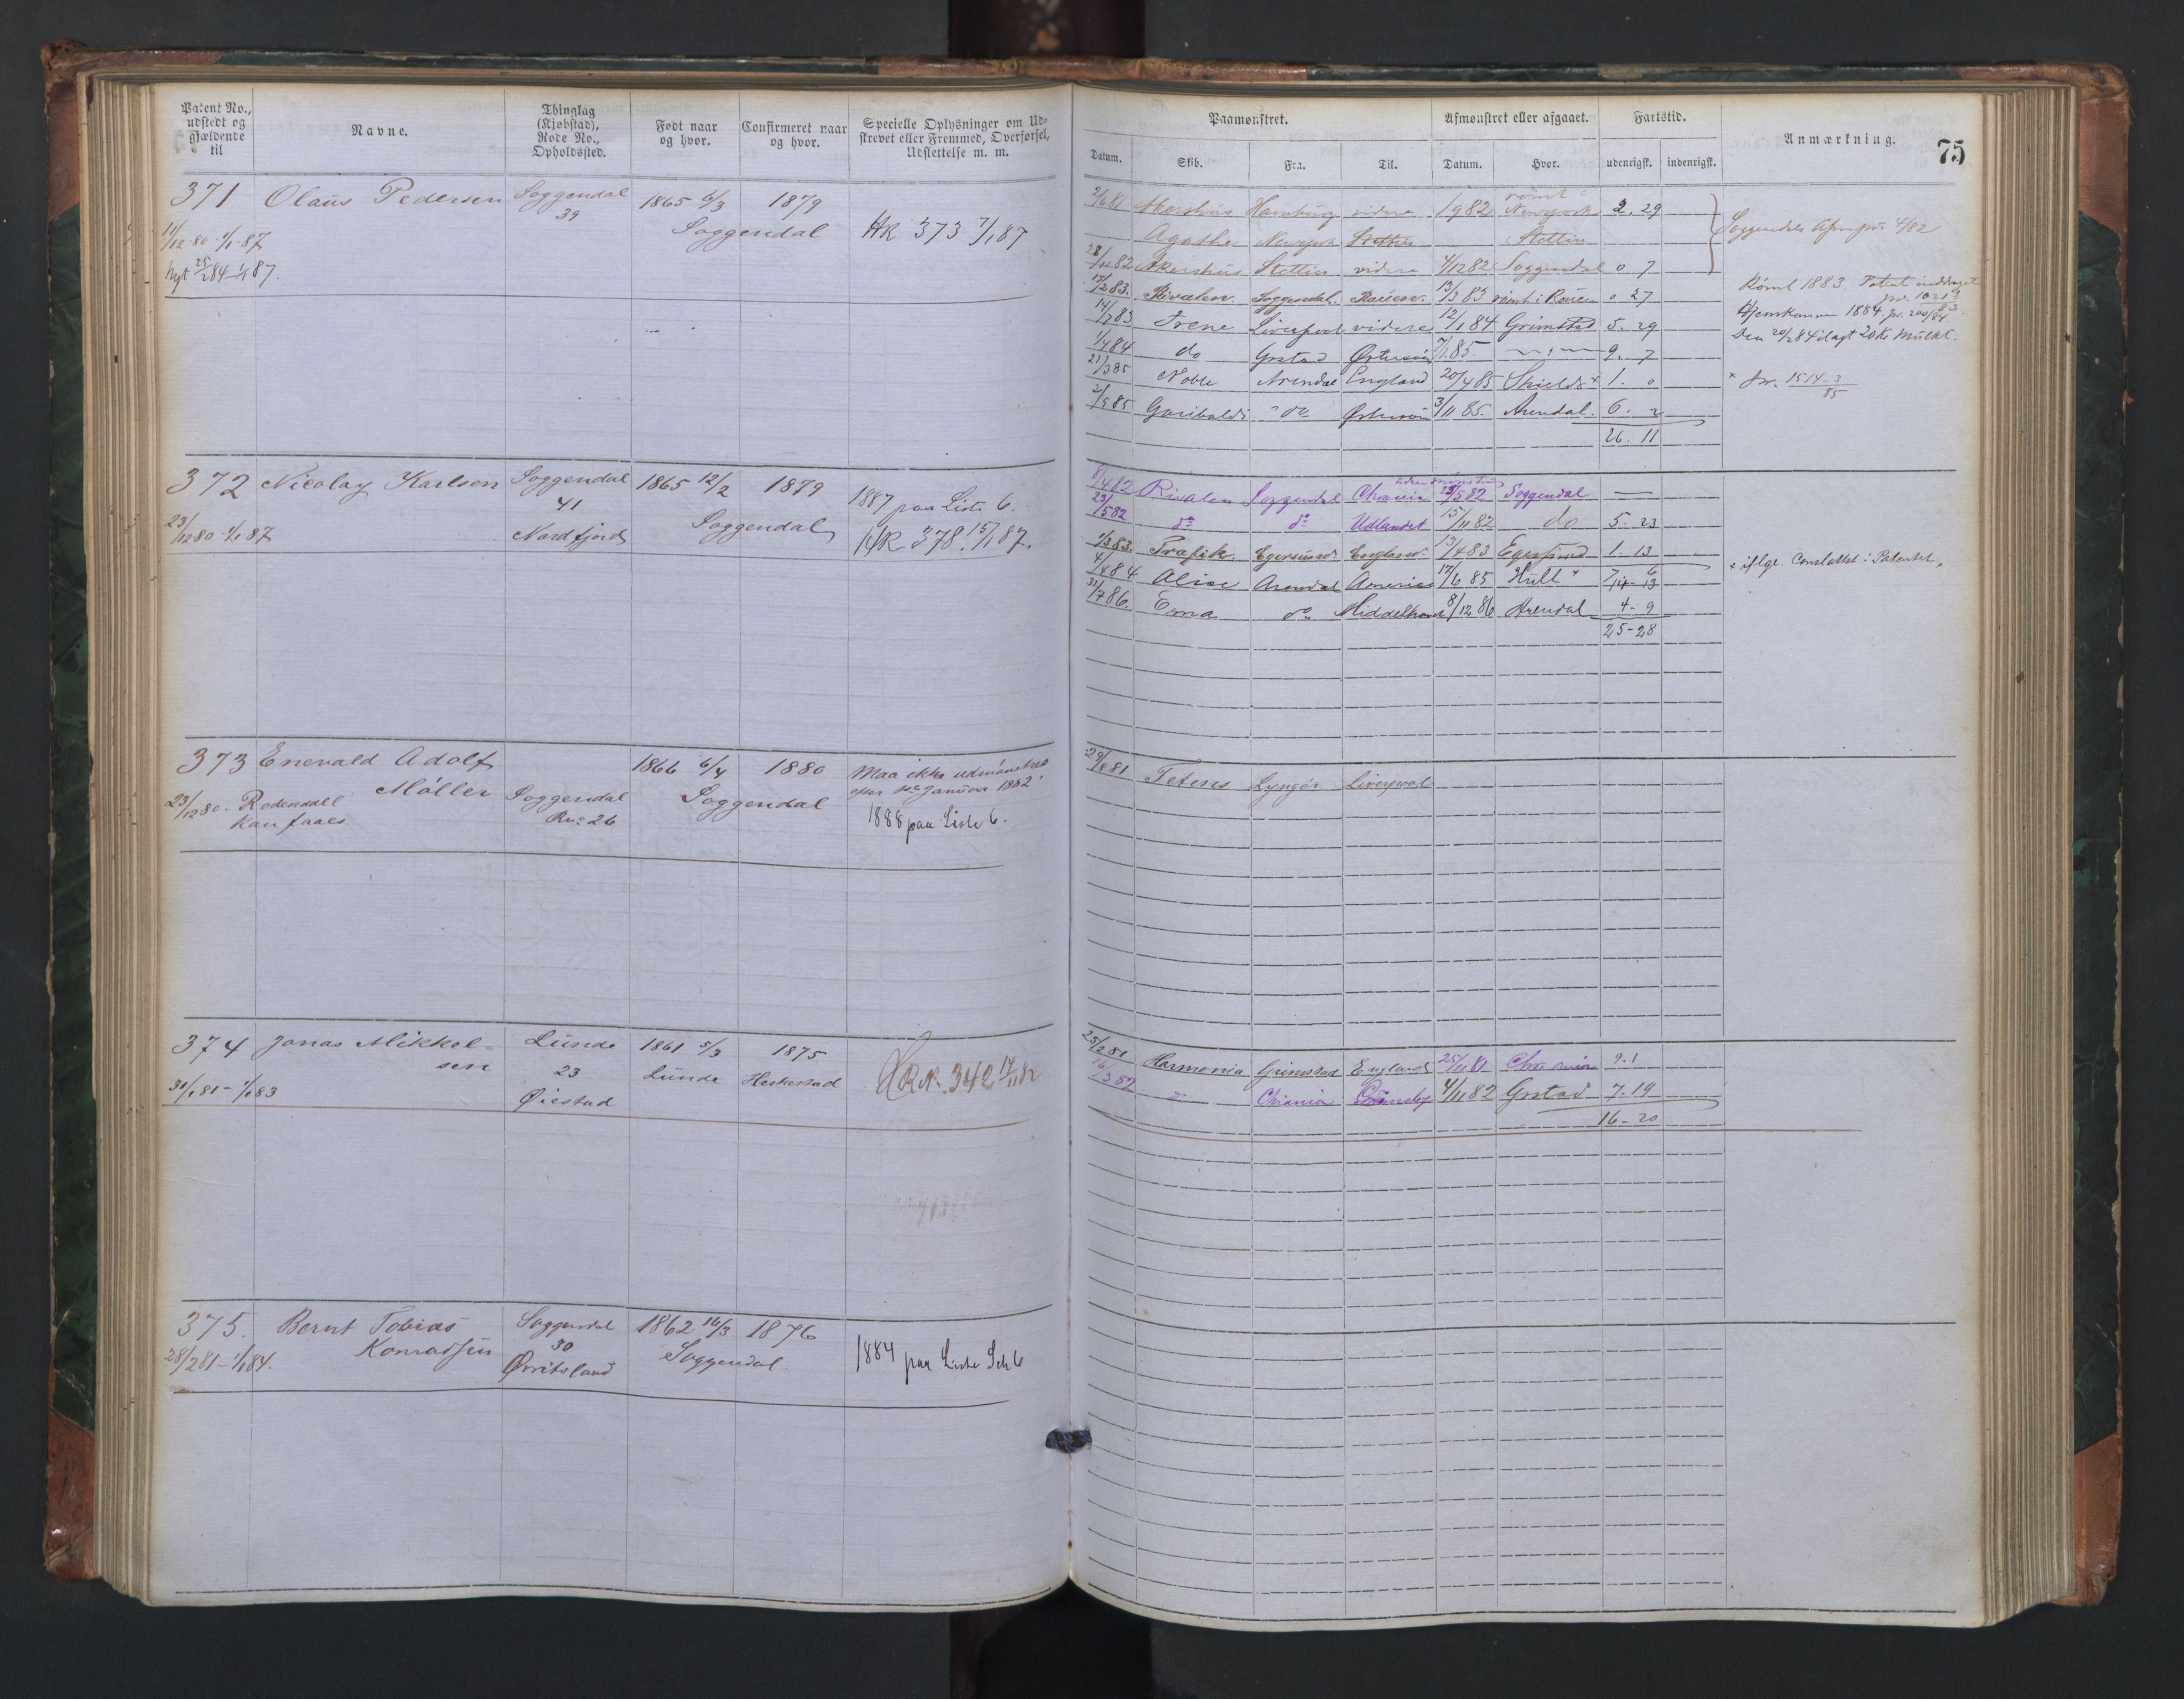 Patent No., udstedt og gjældende til
Navne.
Thinglag (Kjøbstad), Rode No., Opholdssted.
Født naar og hvor.
Confirmeret naar og hvor.
Specielle Oplysninger om Udstrevet eller Fremmed, Overførsel, Udslettelse m. m.
371 Olaus Pedersen Soggendal 1865 6/3 1879
39 Soggendal HR 373 7/1 87
11/12 80 - 1/1 87
Nyt 25/2 84 1/1 87.
372 Nicolay Karlsen Soggendal 1865 12/2 1879 1887 paa Liste 6.
41
23/12 80 - 1/1 87 Nordfjord Soggendal HR 378. 15/1 87.
373 Enevald Adolf 1866 6/4 1880 Maa ikke udmønstres
Møller Soggendal Soggendal efter Januar 1882
23/12 80. Rno 26
kan faaes 1888 paa Liste 6.
374 Jonas Mikkel- Lunde 1861 5/3 1875
sen 23 Lunde Heskestad HR No. 342 14/11 82
31/1 81 - 1/1 83 Øiestad
375. Bernt Tobias Soggendal 1862 16/3 1876
Konradsen 30 Soggendal 1884 paa Liste
28/2 81 - 1/1 84.
75
Paamønstret. Afmønstret eller afgaaet. Fartstid. Anmærkning.
Datum. Skib. Fra. Til. Datum. Hvor. udenrigsk. indenrigsk.
rømt
Hamburg videre Newyork 2. 29
Agathe Newyork Stettin Stettin Soggendal 4/82
Akershus Stettin videre 4/12 82 Soggendal 0 7
Rivalen Soggendal. Rouen. 13/3 83 rømt i Rouen 0 27 Rømt 1883. Patent inddraget
Irene Liverpool videre 12/1 84 Grimstad 5. 29 Hjemkommen 1884
1/4 84 do Grstad Østersøen 7/1 85. 9. 7 Den 20/2 84 ilagt 20 Kr Mulkt.
21/3 85 Noble Arendal England 20/4 85 Shields × 1. 0 × Jnr. 1514-3/85
2/5 85 Garibaldi do Østersøen 3/11 85. Arendal. 6. 2
26. 11
8/4 82 Rivalen Soggendal Chrania 13/5 82 Soggendal
23/5 82 do do Udlandet 15/11 82 do 5. 23
1/3 83. Trafik Egersund England 13/4 83 Egersund 1. 13
4/4 84 Alice Arendal America 17/6 85 Hull × 14-13 × iflge. Consulattet i Patentet.
31/7 86. Erna do Middelhavet 8/12 86 Arendal 4-9
25-28
29/8 81 Tetens Lyngør Liverpool
25/2 81 Harmonia Grimstad England 25/11 81 Chrania 9. 1
16/3 82 Chrania Grimsby 4/11 82 Grstad 7. 19
16-20